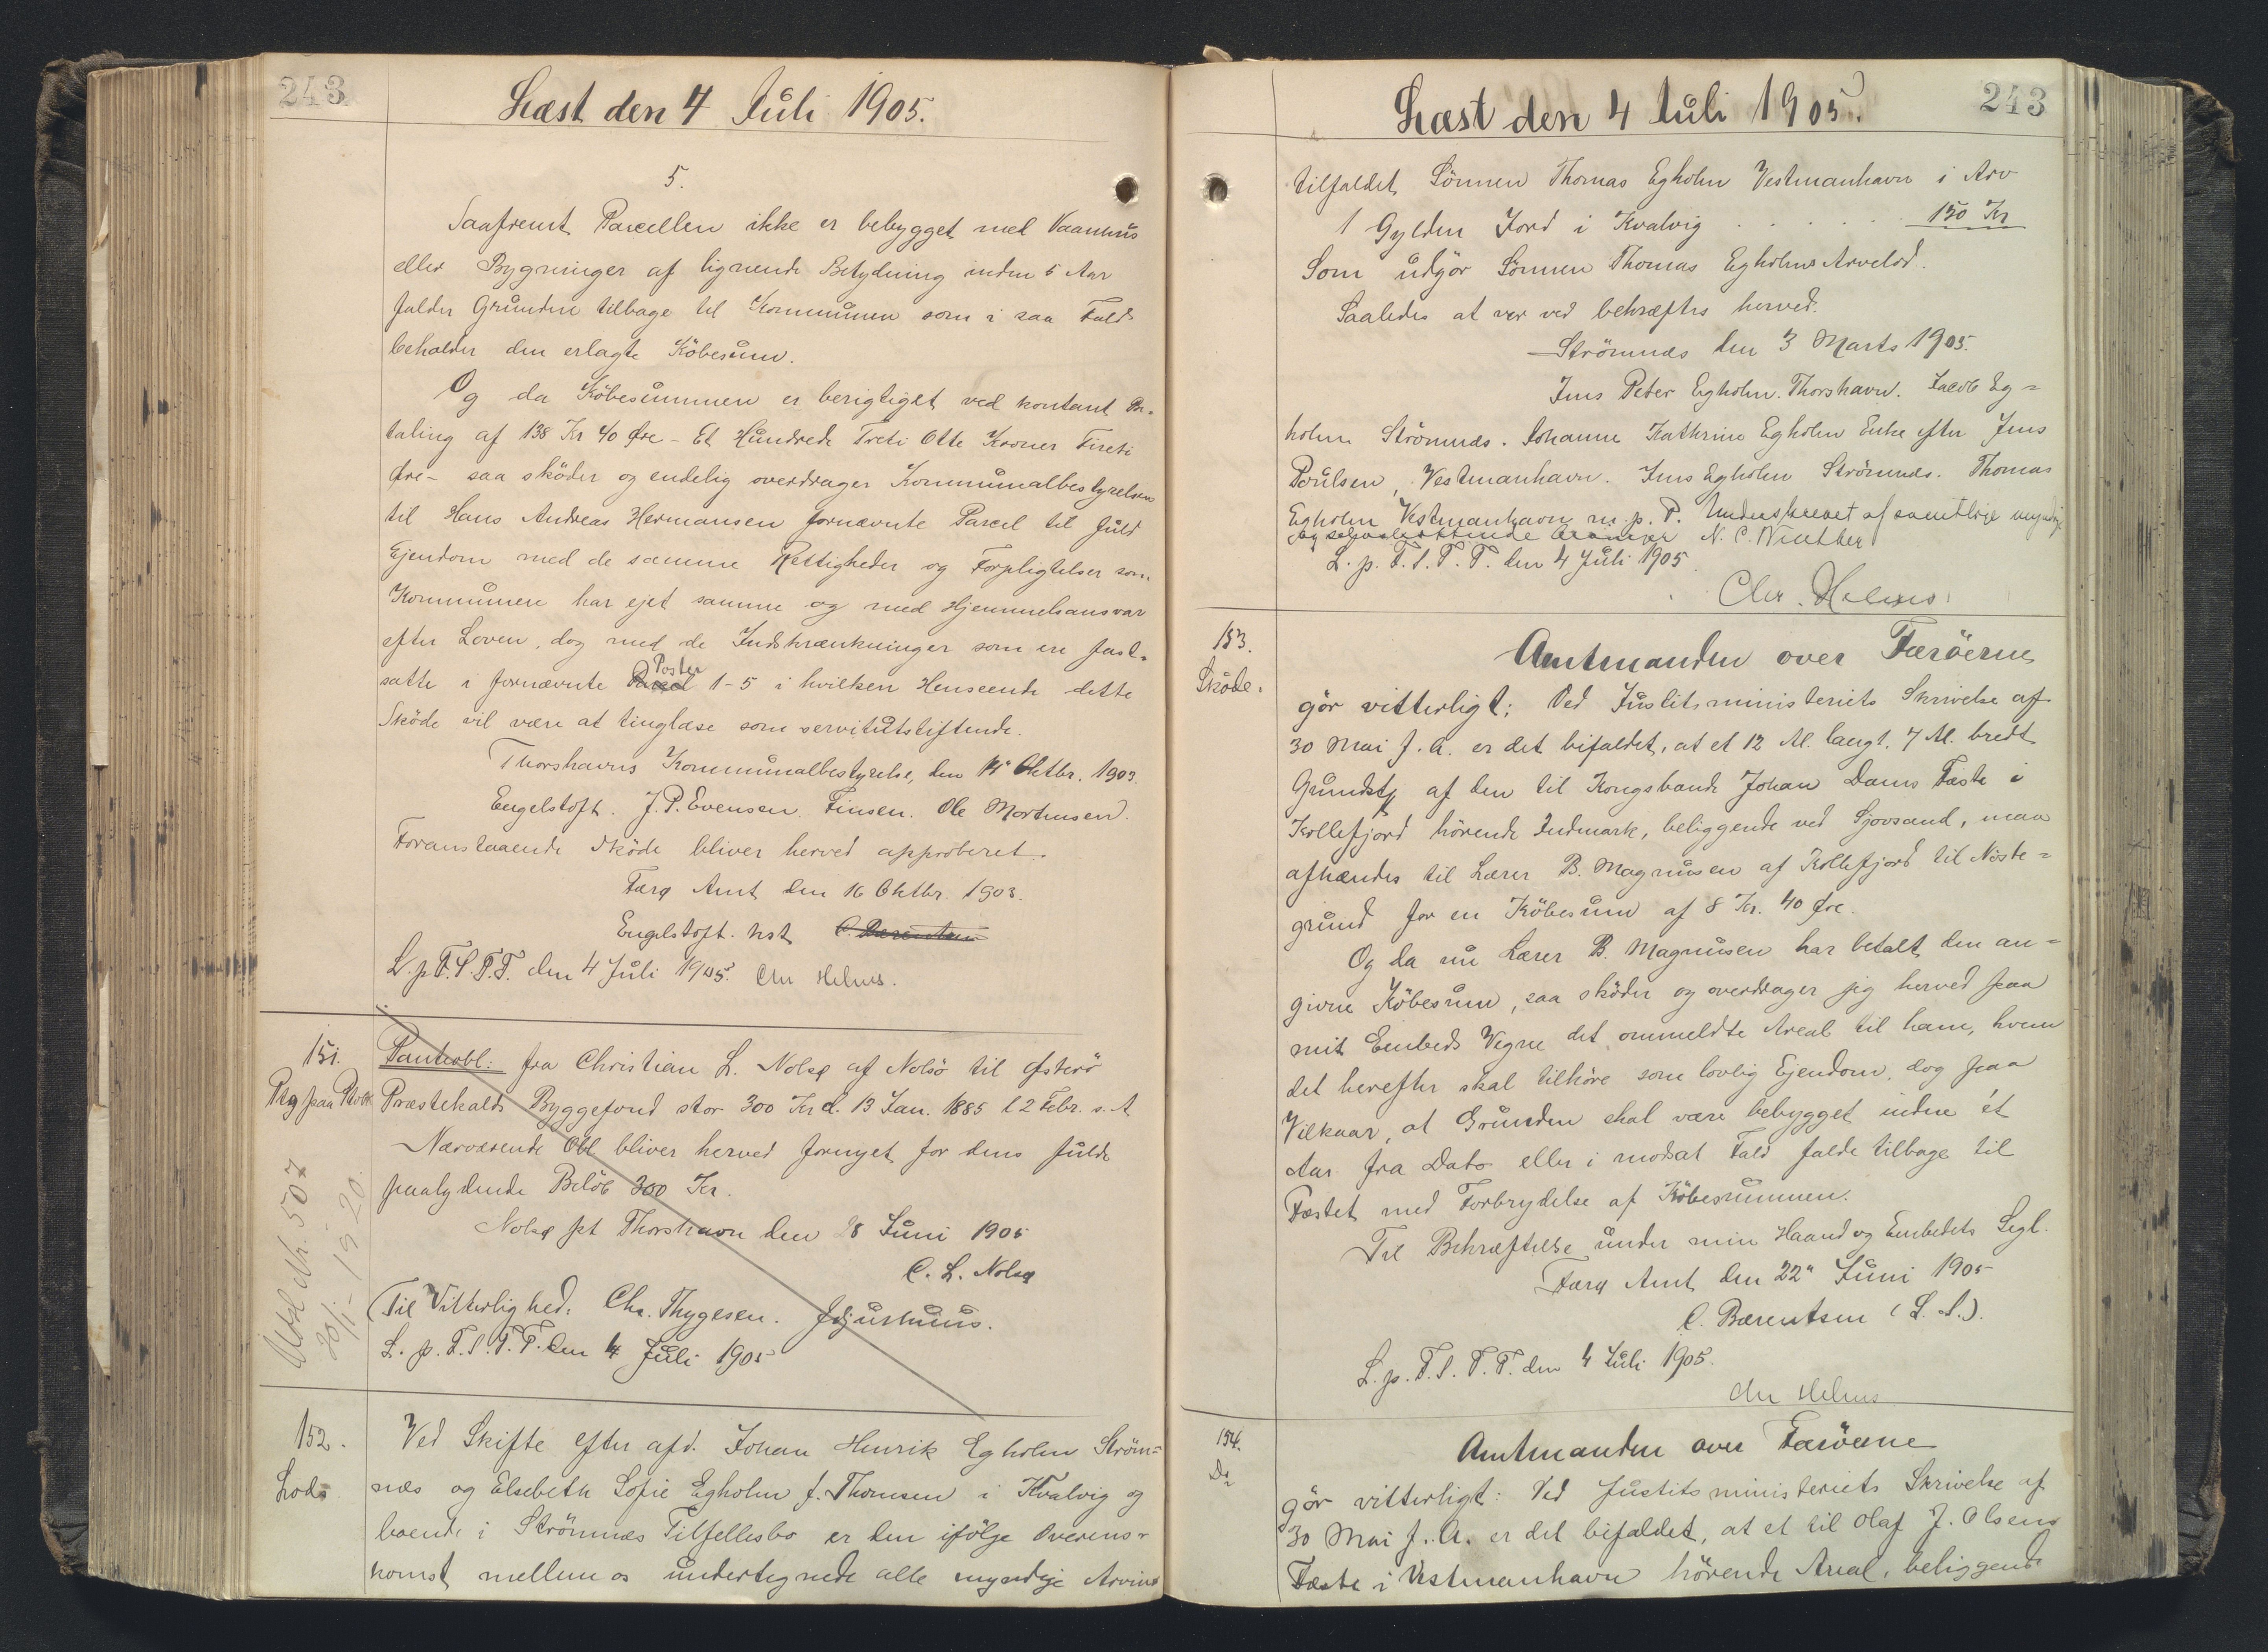 243
Læst den 4 Juli 1905.
5.
Saafremt Parcellen ikke er bebygget med Vaanhus
eller Bygninger af lignende Betydning inden 5 Aar
falder Grunden tilbage til Kommunen som i saa Fald
beholder den erlagte Köbesum.
Og da Köbesummen er berigtiget ved kontant Be-
taling af 138 Kr 40 Øre - Et Hundrede Treti Otte Kroner Fireti
Øre - saa sköder og endelig overdrager Kommunalbestyrelsen
til Hans Andreas Hermansen fornævnte Parcel til fuld
Ejendom med de samme Rettigheder og Forpligtelser som
Kommunen har ejet samme og med Hjemmelsansvar
efter Loven, dog med de Indskrænkninger som ere fast-
satte i fornævnte Poster 1-5 i hvilken Henseende dette
Sköde vil være at tinglæse som servitutstiftende.
Thorshavns Kommunalbestyrelse, den 14 Oktbr. 1903.
Engelstoft. J. P. Evensen. Finsen. Ole Mortensen.
Foranstaaende Sköde bliver herved approberet.
Færø Amt den 16 Oktbr. 1903.
Engelstoft. kst. C. Bærentsen
L. p. F. S. T. T. den 4 Juli 1905. Chr Helms.
151.
Ptg paa
Pantobl: fra Christian L. Nolsø af Nolsö til Østerö
Præstekalds Byggefond stor 300 Kr d. 13 Jan. 1885 l 2 Febr. s. A
Nærværende Obl bliver herved fornyet for dens fulde
paalydende Belöb 300 Kr.
Nolsø pt Thorshavn den 28 Juni 1905
C. L. Nolsø
Til Vitterlighed: Chr. Thygesen. Djurhuus.
L. p. F. S. T. T. den 4 Juli 1905
Aflst Nr. 507
20/1-1920.
152.
Lods
Ved Skifte efter afd. Johan Henrik Egholm Ström=
næs og Elsebeth Sofie Egholm f. Thomsen i Kvalvig og
boende i Strömnæs Til fellesbo er den ifölge Overens-
komst mellem os undertegnede alle myndige Arvinger
243
Læst den 4 Juli 1905.
tilfaldet Sönnen Thomas Egholm Vestmanhavn i Arv
1 Gylden Jord i Kvalvig . . . . . 150 Kr
Som udgör Sönnen Thomas Egholms Arvelod.
Saaledes at vær ved bekræftes herved.
Strömnæs den 3 Marts 1905.
Jens Peter Egholm. Thorshavn. Jacob Eg=
holm Strömnæs. Johanne Kathrine Egholm Enke efter Jens
Poulsen, Vestmanhavn. Jens Egholm Strömnæs. Thomas
Egholm Vestmanhavn m. p. P. Underskrevet af samtlige myndige
og selvskiftende Arvinger N. C. Winther
L. p. F. S. T. T. den 4 Juli 1905.
Chr. Helms.
153.
Sköde.
Amtmanden over Færöerne
gör vitterligt: Ved Justitsministeriets Skrivelse af
30 Mai f. A. er det bifaldet, at et 12 Al. langt, 7 Al. bredt
Grundstk af den til Kongsbonde Johan Dams Fæste i
Kollefjord hörende Indmark, beliggende ved Sjovsand, maa
afhændes til Lærer B. Magnussen af Kollefjord til Nöste=
grund for en Köbesum af 8 Kr. 40 Øre.
Og da nu Lærer B. Magnussen har betalt den an=
givne Köbesum, saa sköder og overdrager jeg herved paa
mit Embeds Vegne det ommeldte Areal til ham, hvem
det herefter skal tilhöre som lovlig Ejendom, dog paa
Vilkaar, at Grunden skal være bebygget inden ét
Aar fra Dato eller i modsat Fald falde tilbage til
Fæstet med Forbrydelse af Köbesummen.
Til Bekræftelse under min Haand og Embedets Segl.
Færø Amt den 22" Juni 1905
C. Bærentsen (L. S.).
L. p. F. S. T. T. den 4 Juli 1905.
Chr Helms
154.
Do
Amtmanden over Færöerne
gör vitterligt: Ved Justitsministeriets Skrivelse af
30 Mai f. A. er det bifaldet, at et til Olaf J. Olsens
Fæste i Vestmanhavn hörende Areal, beliggende